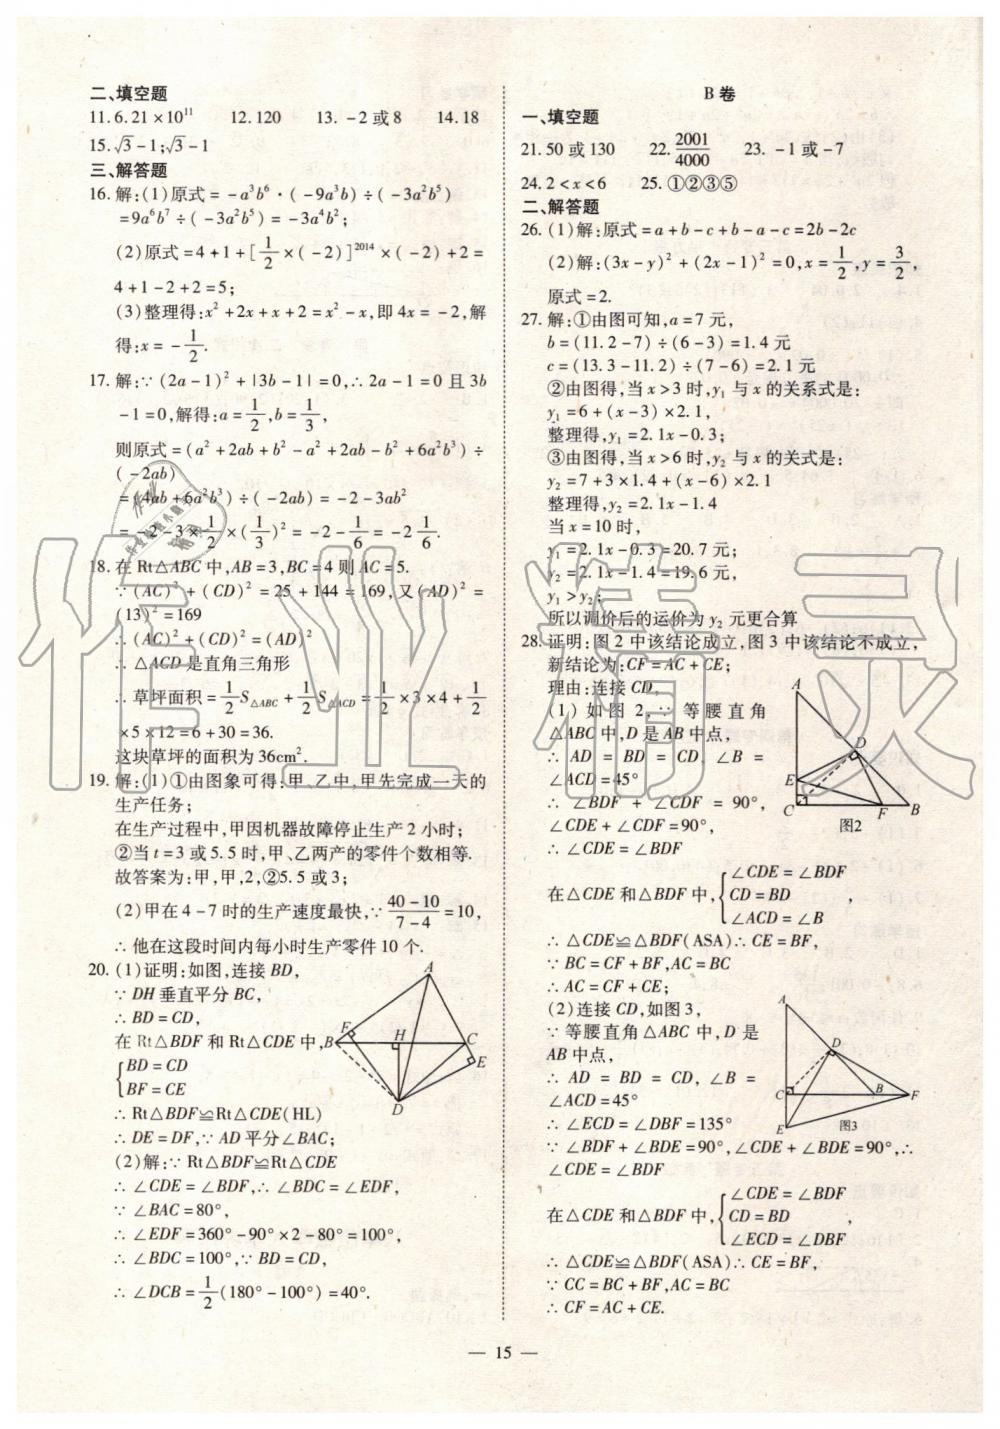 二、填空题
11. 6.21×10¹¹ 12. 120 13. -2或8 14. 18
15. √3-1;√3-1
三、解答题
16. 解:(1)原式=-a³b⁶·(-9a³b)÷(-3a²b⁵)
=9a⁶b⁷÷(-3a²b⁵)=-3a⁴b²;
(2)原式=4+1+[1/2×(-2)]²⁰¹⁴×(-2)+2=
4+1-2+2=5;
(3)整理得:x²+2x+x+2=x²-x,即4x=-2,解
得:x=-1/2.
17. 解:∵(2a-1)²+|3b-1|=0,∴2a-1=0且3b
-1=0,解得:a=1/2,b=1/3,
则原式=(a²+2ab+b²-a²+2ab-b²+6a²b³)÷
(-2ab)
=(4ab+6a²b³)÷(-2ab)=-2-3ab²
=-2-3×1/2×(1/3)²=-2-1/6=-2 1/6.
18. 在Rt△ABC中,AB=3,BC=4则AC=5.
∵(AC)²+(CD)²=25+144=169,又(AD)²=
(13)²=169
∴(AC)²+(CD)²=(AD)²
∴△ACD是直角三角形
∴草坪面积=1/2S△ABC+1/2S△ACD=1/2×3×4+1/2
×5×12=6+30=36.
这块草坪的面积为36cm².
19. 解:(1)①由图象可得:甲、乙中,甲先完成一天的
生产任务;
在生产过程中,甲因机器故障停止生产2小时;
②当t=3或5.5时,甲、乙两产的零件个数相等.
故答案为:甲,甲,2,②5.5或3;
(2)甲在4-7时的生产速度最快,∵(40-10)/(7-4)=10,
∴他在这段时间内每小时生产零件10个.
20. (1)证明:如图,连接BD,
∵DH垂直平分BC,
∴BD=CD,
在Rt△BDF和Rt△CDE中,
{BD=CD
BF=CE
∴Rt△BDF≌Rt△CDE(HL)
∴DE=DF,∵AD平分∠BAC;
(2)解:∵Rt△BDF≌Rt△CDE
∴∠CDE=∠BDF,∴∠BDC=∠EDF,
∵∠BAC=80°,
∴∠EDF=360°-90°×2-80°=100°,
∴∠BDC=100°,∵BD=CD,
∴∠DCB=1/2(180°-100°)=40°.
A
F
B
H
C
E
D
B卷
一、填空题
21. 50或130 22. 2001/4000 23. -1或-7
24. 2<x<6 25. ①②③⑤
二、解答题
26. (1)解:原式=a+b-c+b-a-c=2b-2c
(2)解:(3x-y)²+(2x-1)²=0,x=1/2,y=3/2,
原式=2.
27. 解:①由图可知,a=7元,
b=(11.2-7)÷(6-3)=1.4元
c=(13.3-11.2)÷(7-6)=2.1元
②由图得,当x>3时,y₁与x的关系式是:
y₁=6+(x-3)×2.1,
整理得,y₁=2.1x-0.3;
③由图得,当x>6时,y₂与x的关式是:
y₂=7+3×1.4+(x-6)×2.1
整理得,y₂=2.1x-1.4
当x=10时,
y₁=2.1x-0.3=20.7元;
y₂=2.1x-1.4=19.6元,
y₁>y₂;
所以调价后的运价为y₂元更合算
28. 证明:图2中该结论成立,图3中该结论不成立,
新结论为:CF=AC+CE;
理由:连接CD,
(1)如图2,∵等腰直角
△ABC中,D是AB中点,
∴AD=BD=CD,∠B=
∠ACD=45°
∴∠BDF+∠CDF=90°,
∠CDE+∠CDF=90°,
∴∠CDE=∠BDF
A
D
E
C
F
B
图2
在△CDE和△BDF中,{∠CDE=∠BDF
CD=BD
∠ACD=∠B,
∴△CDE≌△BDF(ASA)∴CE=BF,
∵BC=CF+BF,AC=BC
∴AC=CF+CE;
(2)连接CD,如图3,
∵等腰直角△ABC中,D是
AB中点,
∴AD=BD=CD,∠B=
∠ACD=45°
∴∠ECD=∠DBF=135°
∵∠BDF+∠BDE=90°,∠CDE+∠BDE=90°,∴
∠CDE=∠BDF
A
D
C
B
F
E
图3
在△CDE和△BDF中,{∠CDE=∠BDF
CD=BD
∠ECD=∠DBF,
∴△CDE≌△BDF(ASA)∴CE=BF,
∵CC=BC+BF,AC=BC
∴CF=AC+CE.
— 15 —
作业精灵